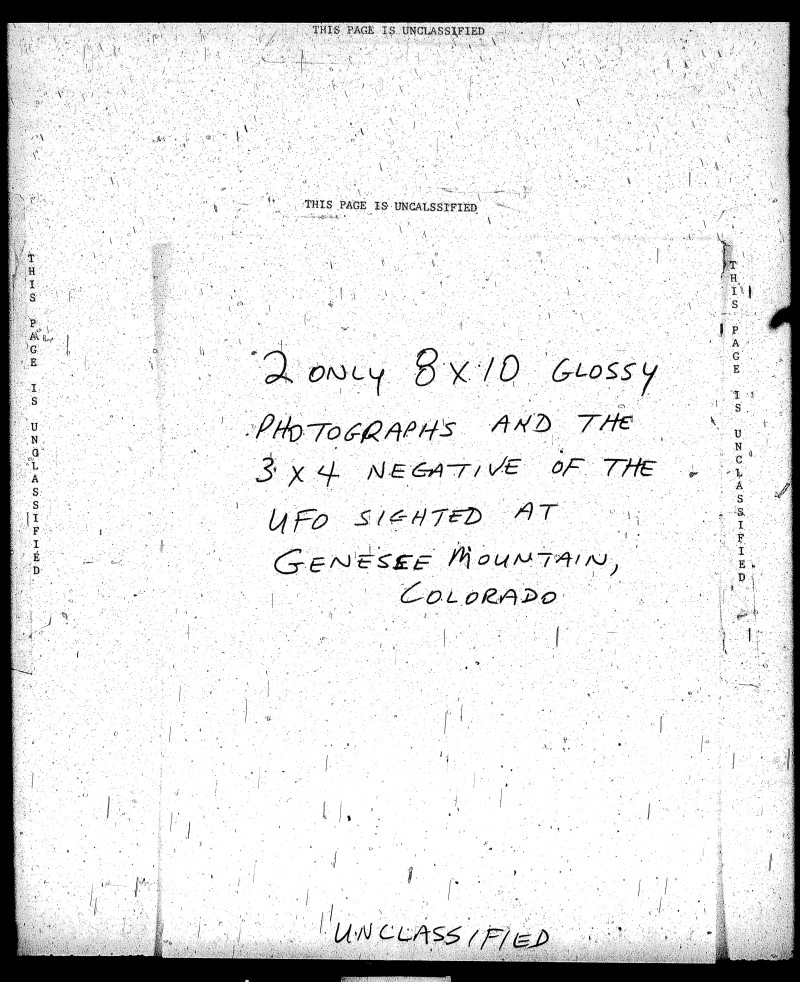 THIS PAGE IS UNCLASSIFIED
THIS PAGE IS UNCALSSIFIED
THIS PAGE IS UNCLASSIFIED
THIS PAGE IS UNCLASSIFIED
2 ONLY 8X10 GLOSSY
PHOTOGRAPHS AND THE
3X4 NEGATIVE OF THE
UFO SIGHTED AT
GENESEE MOUNTAIN,
COLORADO
UNCLASSIFIED